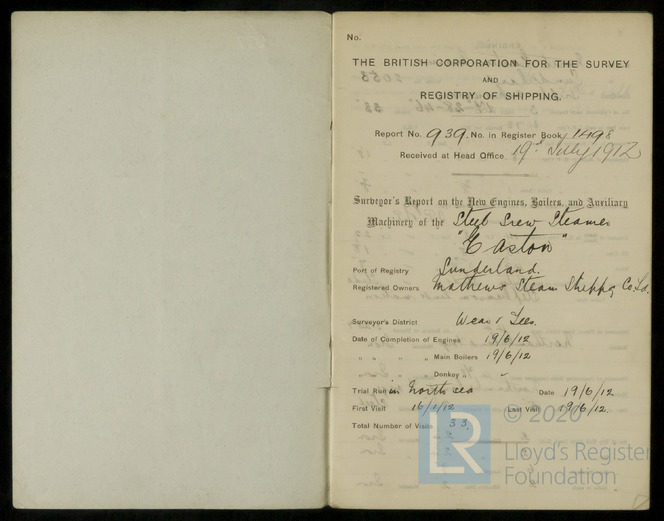 No.
THE BRITISH CORPORATION FOR THE SURVEY
AND
REGISTRY OF SHIPPING.
Report No. 939. No. in Register Book 1498
Received at Head Office 19th July 1912
Surveyor's Report on the New Engines, Boilers, and Auxiliary
Machinery of the Steel Screw Steamer
"Easton"
Port of Registry Sunderland.
Registered Owners Mathews Steam Shipping Co. Ld.
Surveyor's District Wear & Tees.
Date of Completion of Engines 19/6/12
" " " " Main Boilers 19/6/12
" " " " Donkey " "
Trial Run in North sea Date 19/6/12
First Visit 16/1/12 Last Visit 19/6/12.
Total Number of Visits 33.
LR © 2020
Lloyd's Register
Foundation